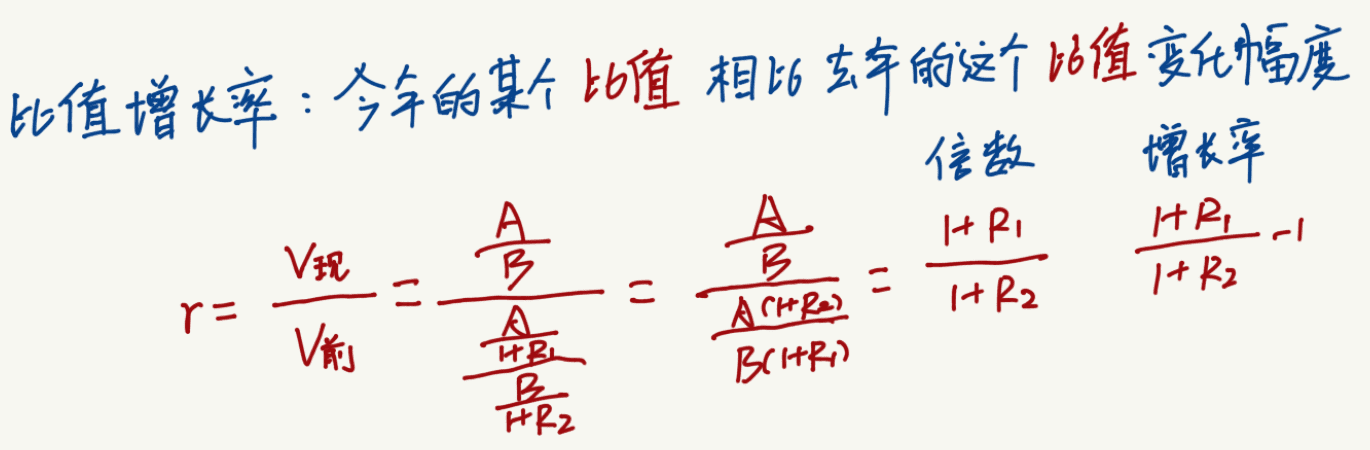 比值增长率：今年的某个比值 相比去年的这个比值变化幅度
倍数 增长率
r = V现/V前 = (A/B)/((A/(1+R₁))/(B/(1+R₂))) = (A/B)/((A(1+R₂))/(B(1+R₁))) = (1+R₁)/(1+R₂) (1+R₁)/(1+R₂) -1